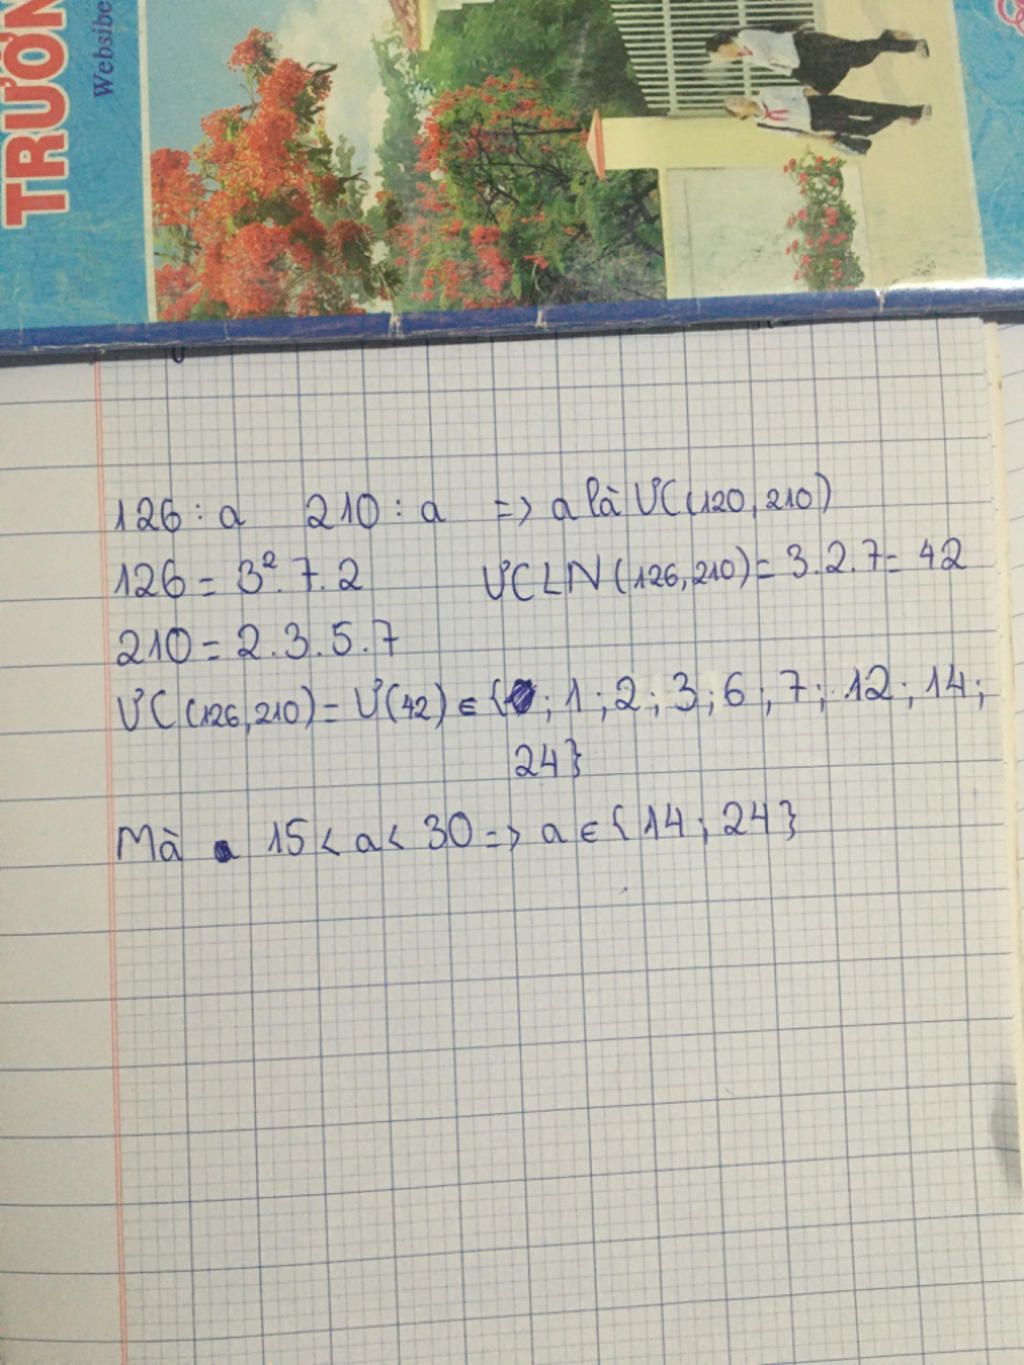 TRƯỜN
Website
126 : a 210 : a => a là ƯC(120, 210)
126 = 3². 7. 2 ƯCLN (126, 210) = 3. 2. 7 = 42
210 = 2. 3. 5. 7
ƯC (126, 210) = Ư(42) ∈ { ; 1 ; 2 ; 3 ; 6 ; 7 ; 12 ; 14 ;
24}
Mà 15 < a < 30 => a ∈ { 14 ; 24 }